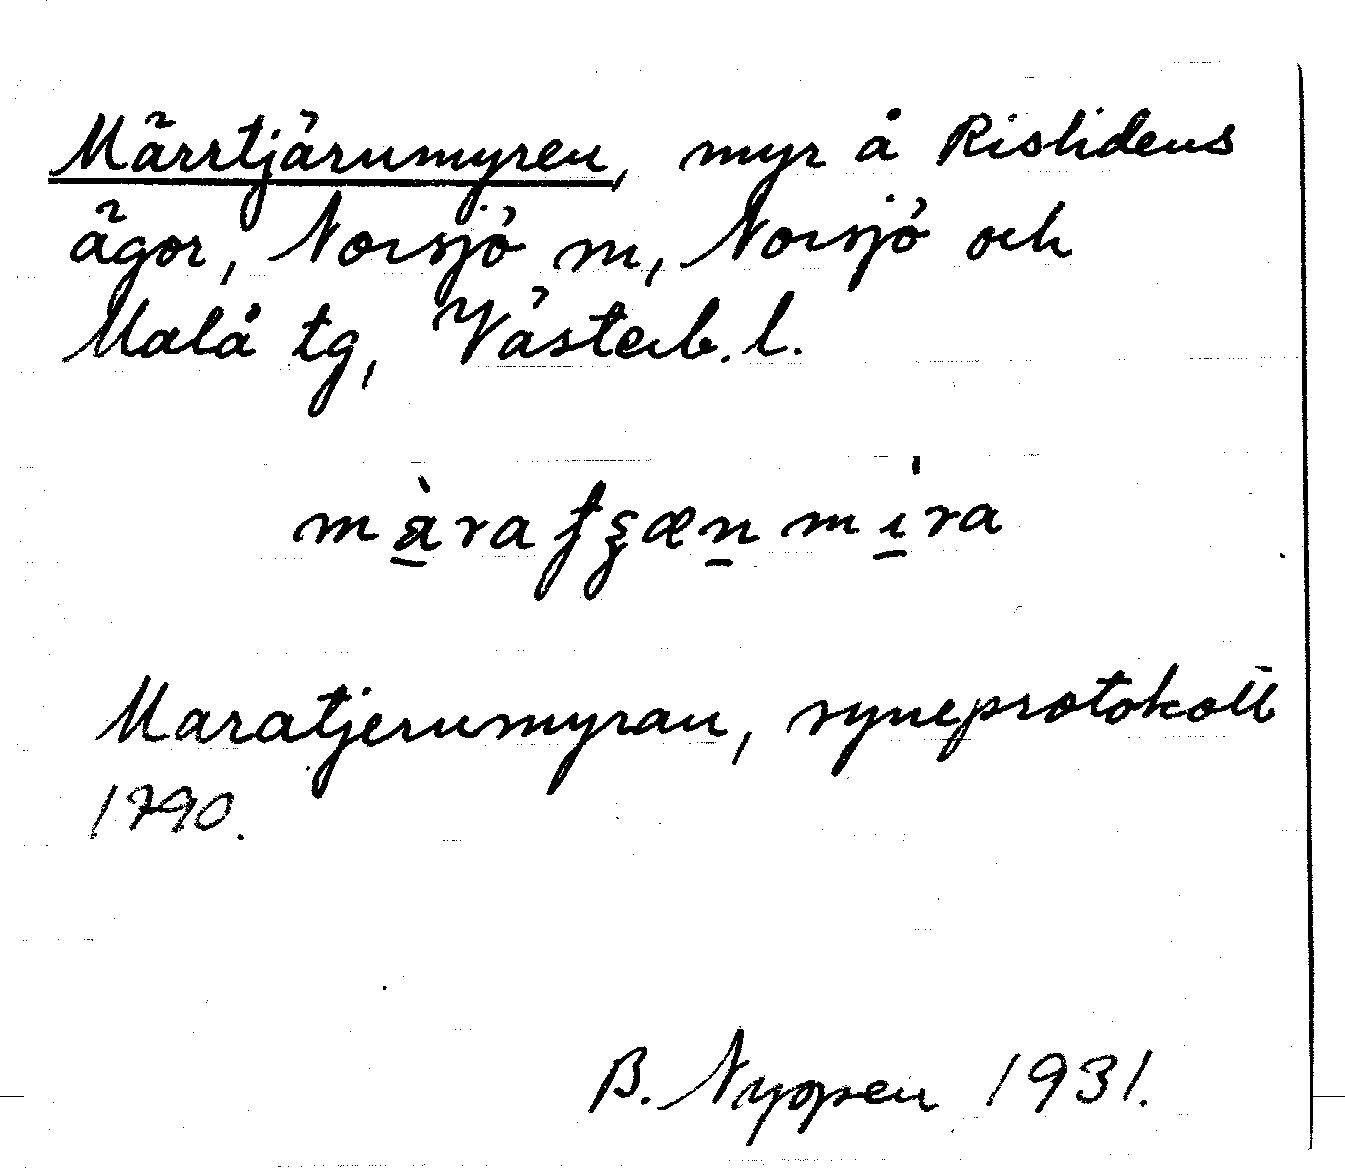 Märrtjärnmyren, myr å Rislidens
ägor, Norsjö sn, Norsjö och
Malå tg, Västerb. l.
Maratjernmyran, syneprotokoll
1790.
B. Nyppen 1931.